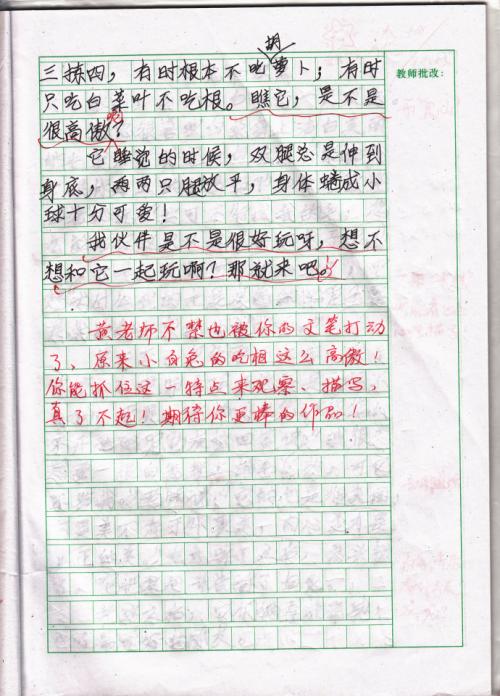 胡
三拣四，有时根本不吃萝卜；有时
教师批改：
只吃白菜叶不吃根。瞧它，是不是
很高傲？
呢
它睡觉的时候，双腿总是伸到
身底，两两只腿放平，身体蜷成小
球十分可爱！
我伙伴是不是很好玩呀，想不
想和它一起玩啊？那就来吧。
黄老师不禁也被你的文笔打动
了，原来小白兔的吃相这么高傲！
你能抓住这一特点来观察、描写，
真了不起！期待你更棒的作品！